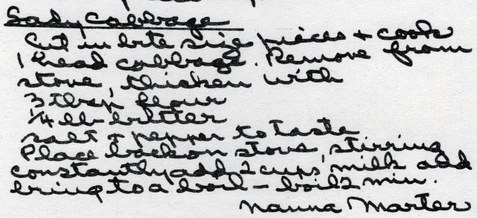 Lady Cabbage
Cut in bite size pieces + cook
1 head cabbage. Remove from
stove, thicken with
3 tbsp flour
1/4 lb butter
salt + pepper to taste
Place back on stove, stirring
constantly add 2 cups milk add
bring to a boil - boil 2 min.
Nanna Marter